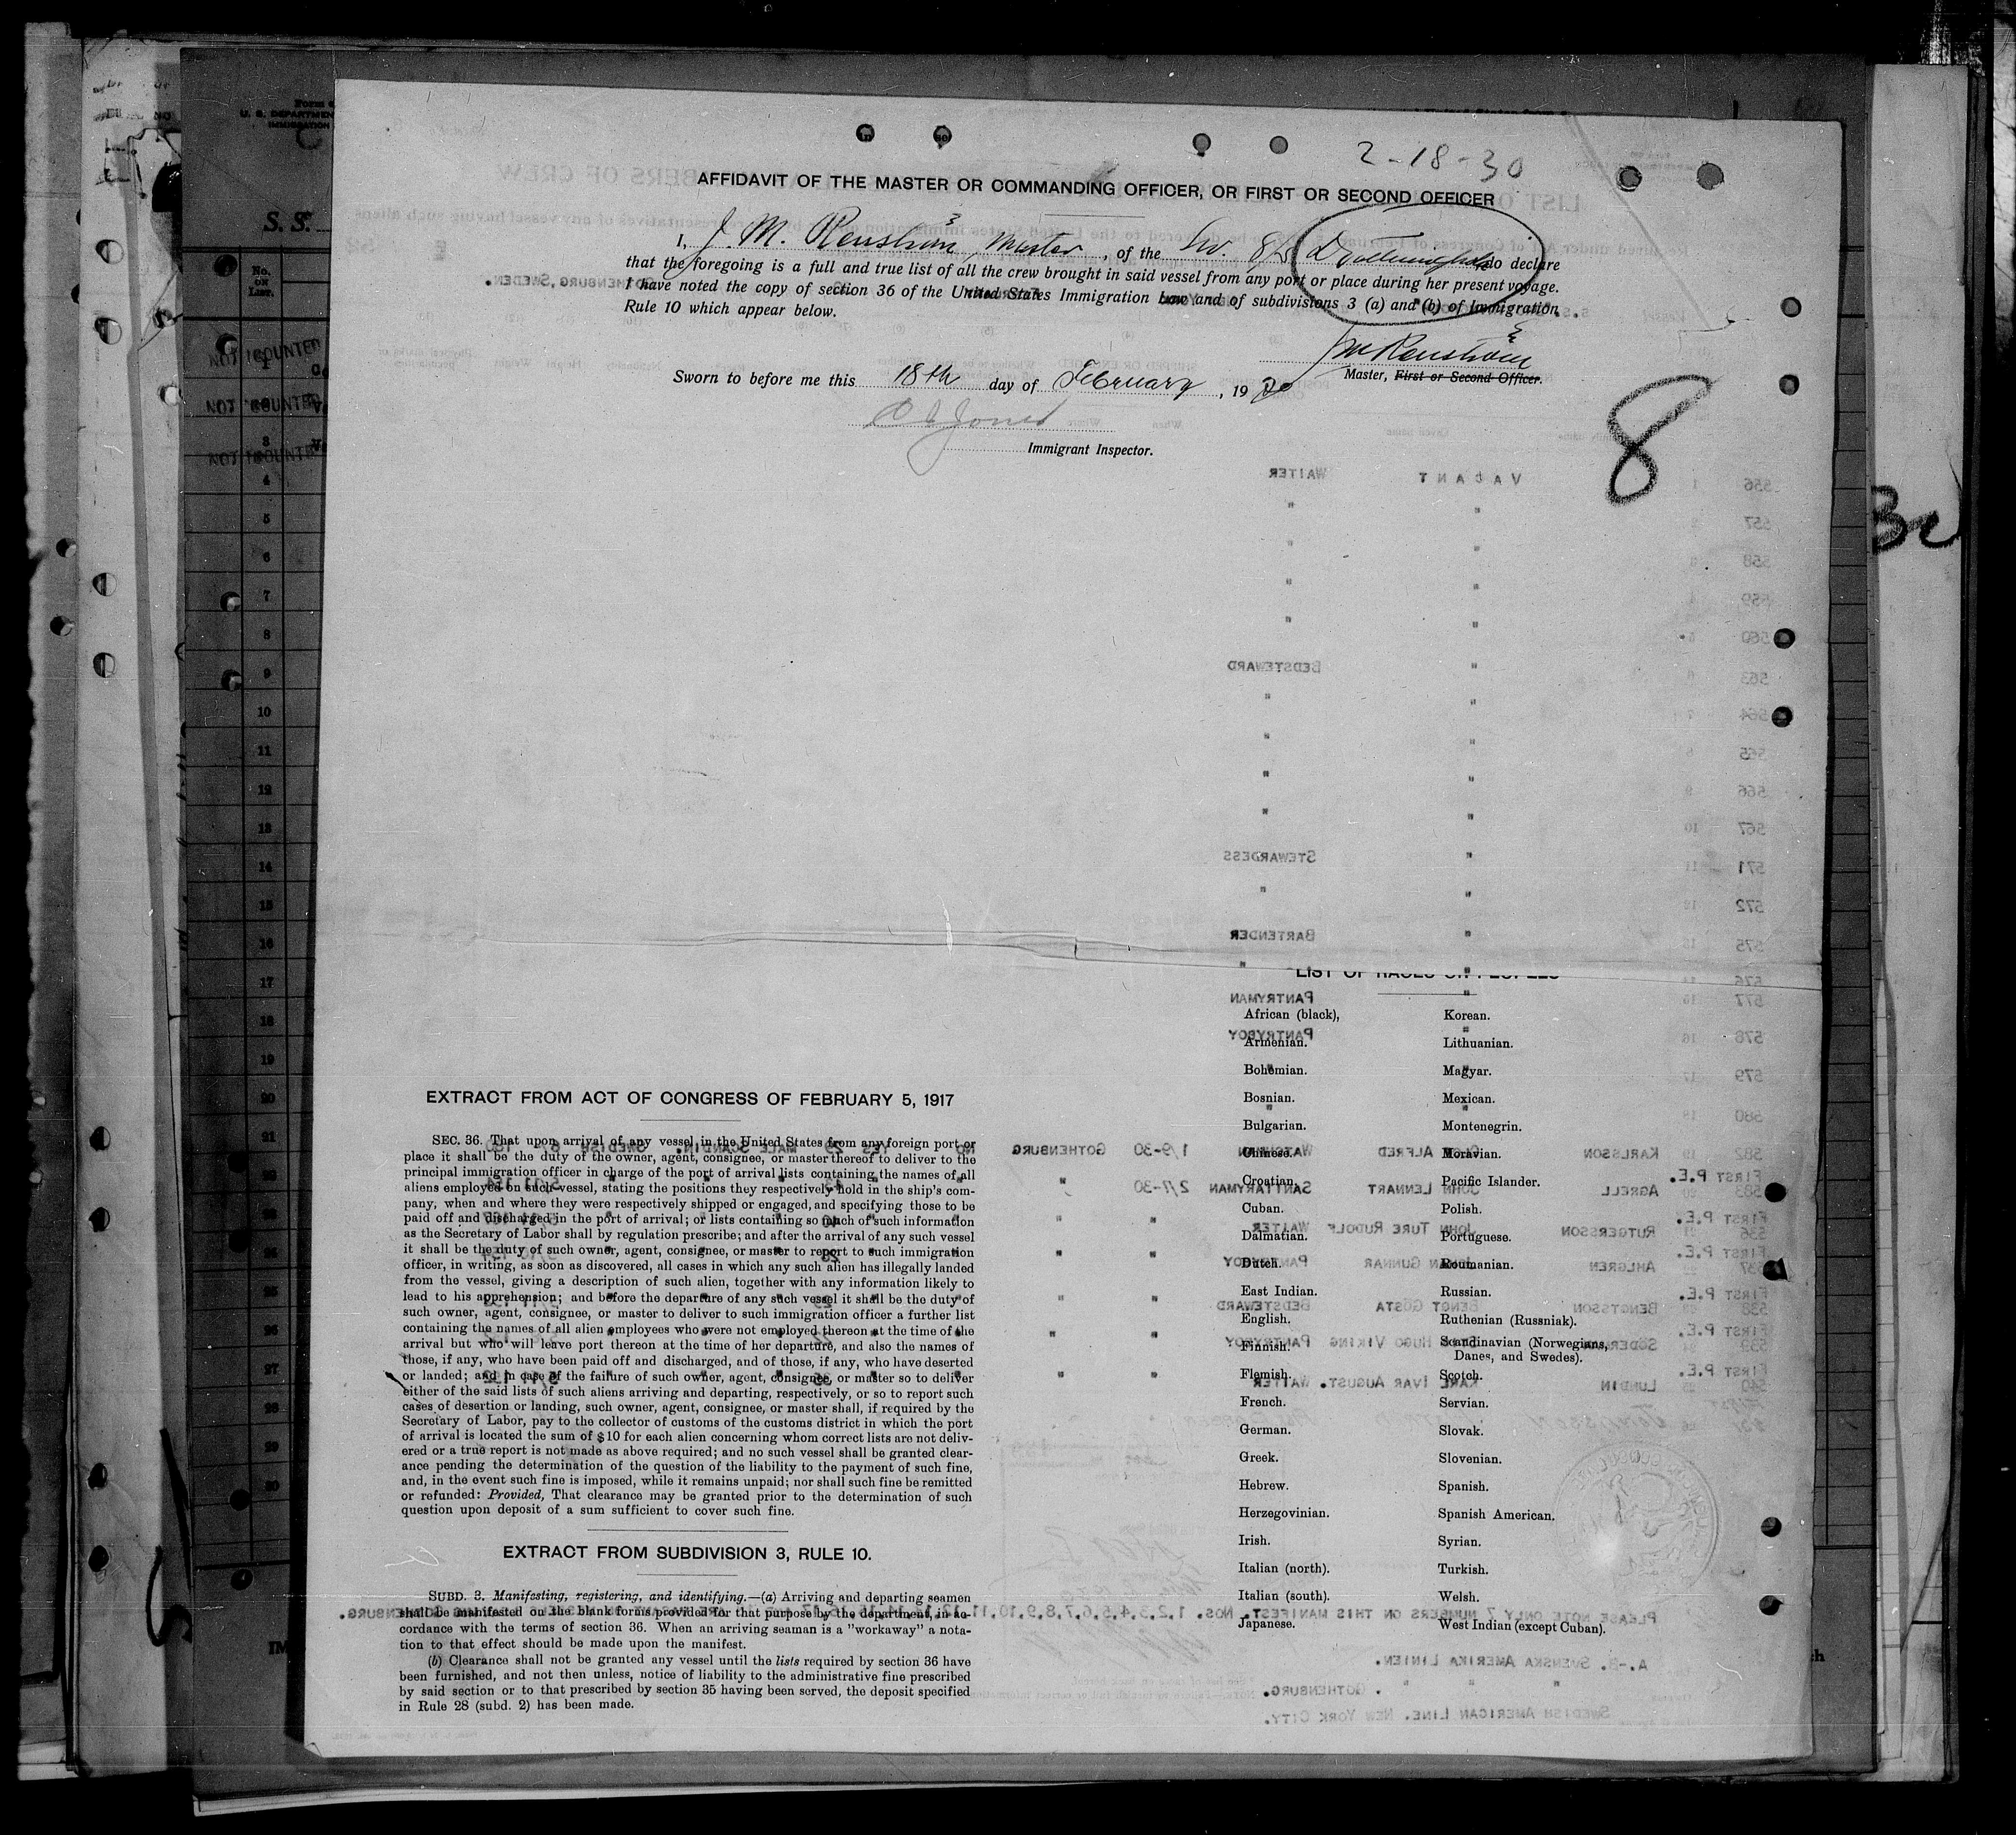 2-18-30
AFFIDAVIT OF THE MASTER OR COMMANDING OFFICER, OR FIRST OR SECOND OFFICER
I, J. M. Master, of the Sw. do declare
that the foregoing is a full and true list of all the crew brought in said vessel from any port or place during her present voyage.
I have noted the copy of section 36 of the United States Immigration Law and of subdivisions 3 (a) and (b) of Immigration
Rule 10 which appear below.
Master, First or Second Officer.
Sworn to before me this 18th day of February, 1930
Jones
Immigrant Inspector.
8
S. S.
No. on List.
EXTRACT FROM ACT OF CONGRESS OF FEBRUARY 5, 1917
SEC. 36. That upon arrival of any vessel in the United States from any foreign port or
place it shall be the duty of the owner, agent, consignee, or master thereof to deliver to the
principal immigration officer in charge of the port of arrival lists containing the names of all
aliens employed on such vessel, stating the positions they respectively hold in the ship's com-
pany, when and where they were respectively shipped or engaged, and specifying those to be
paid off and discharged in the port of arrival; or lists containing so much of such information
as the Secretary of Labor shall by regulation prescribe; and after the arrival of any such vessel
it shall be the duty of such owner, agent, consignee, or master to report to such immigration
officer, in writing, as soon as discovered, all cases in which any such alien has illegally landed
from the vessel, giving a description of such alien, together with any information likely to
lead to his apprehension; and before the departure of any such vessel it shall be the duty of
such owner, agent, consignee, or master to deliver to such immigration officer a further list
containing the names of all alien employees who were not employed thereon at the time of the
arrival but who will leave port thereon at the time of her departure, and also the names of
those, if any, who have been paid off and discharged, and of those, if any, who have deserted
or landed; and in case of the failure of such owner, agent, consignee, or master so to deliver
either of the said lists of such aliens arriving and departing, respectively, or so to report such
cases of desertion or landing, such owner, agent, consignee, or master shall, if required by the
Secretary of Labor, pay to the collector of customs of the customs district in which the port
of arrival is located the sum of $10 for each alien concerning whom correct lists are not deliv-
ered or a true report is not made as above required; and no such vessel shall be granted clear-
ance pending the determination of the question of the liability to the payment of such fine,
and, in the event such fine is imposed, while it remains unpaid; nor shall such fine be remitted
or refunded: Provided, That clearance may be granted prior to the determination of such
question upon deposit of a sum sufficient to cover such fine.
EXTRACT FROM SUBDIVISION 3, RULE 10.
SUBD. 3. Manifesting, registering, and identifying.—(a) Arriving and departing seamen
shall be manifested on the blank forms provided for that purpose by the department, in ac-
cordance with the terms of section 36. When an arriving seaman is a "workaway" a nota-
tion to that effect should be made upon the manifest.
(b) Clearance shall not be granted any vessel until the lists required by section 36 have
been furnished, and not then unless, notice of liability to the administrative fine prescribed
by said section or to that prescribed by section 35 having been served, the deposit specified
in Rule 28 (subd. 2) has been made.
LIST OF RACES OR PEOPLES
African (black),
Armenian.
Bohemian.
Bosnian.
Bulgarian.
Chinese.
Croatian.
Cuban.
Dalmatian.
Dutch.
East Indian.
English.
Finnish.
Flemish.
French.
German.
Greek.
Hebrew.
Herzegovinian.
Irish.
Italian (north).
Italian (south).
Japanese.
Korean.
Lithuanian.
Magyar.
Mexican.
Montenegrin.
Moravian.
Pacific Islander.
Polish.
Portuguese.
Roumanian.
Russian.
Ruthenian (Russniak).
Scandinavian (Norwegians,
Danes, and Swedes).
Scotch.
Servian.
Slovak.
Slovenian.
Spanish.
Spanish American.
Syrian.
Turkish.
Welsh.
West Indian (except Cuban).